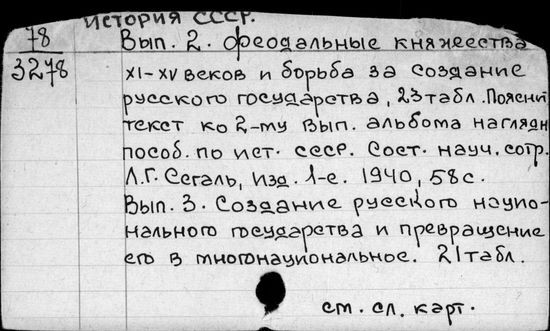 История СССР.
78 Вып. 2. Феодальные княжества
3278 XI-XV веков и борьба за создание
русского государства, 23 табл. Поясни
текст ко 2-му вып. альбома наглядн
пособ. по ист. СССР. Сост. науч. сотр.
Л.Г. Сегаль, Изд. 1-е. 1940, 58 с.
Вып. 3. Создание русского нацио-
нального государства и превращение
его в многонациональное. 21 табл.
см. сл. карт.